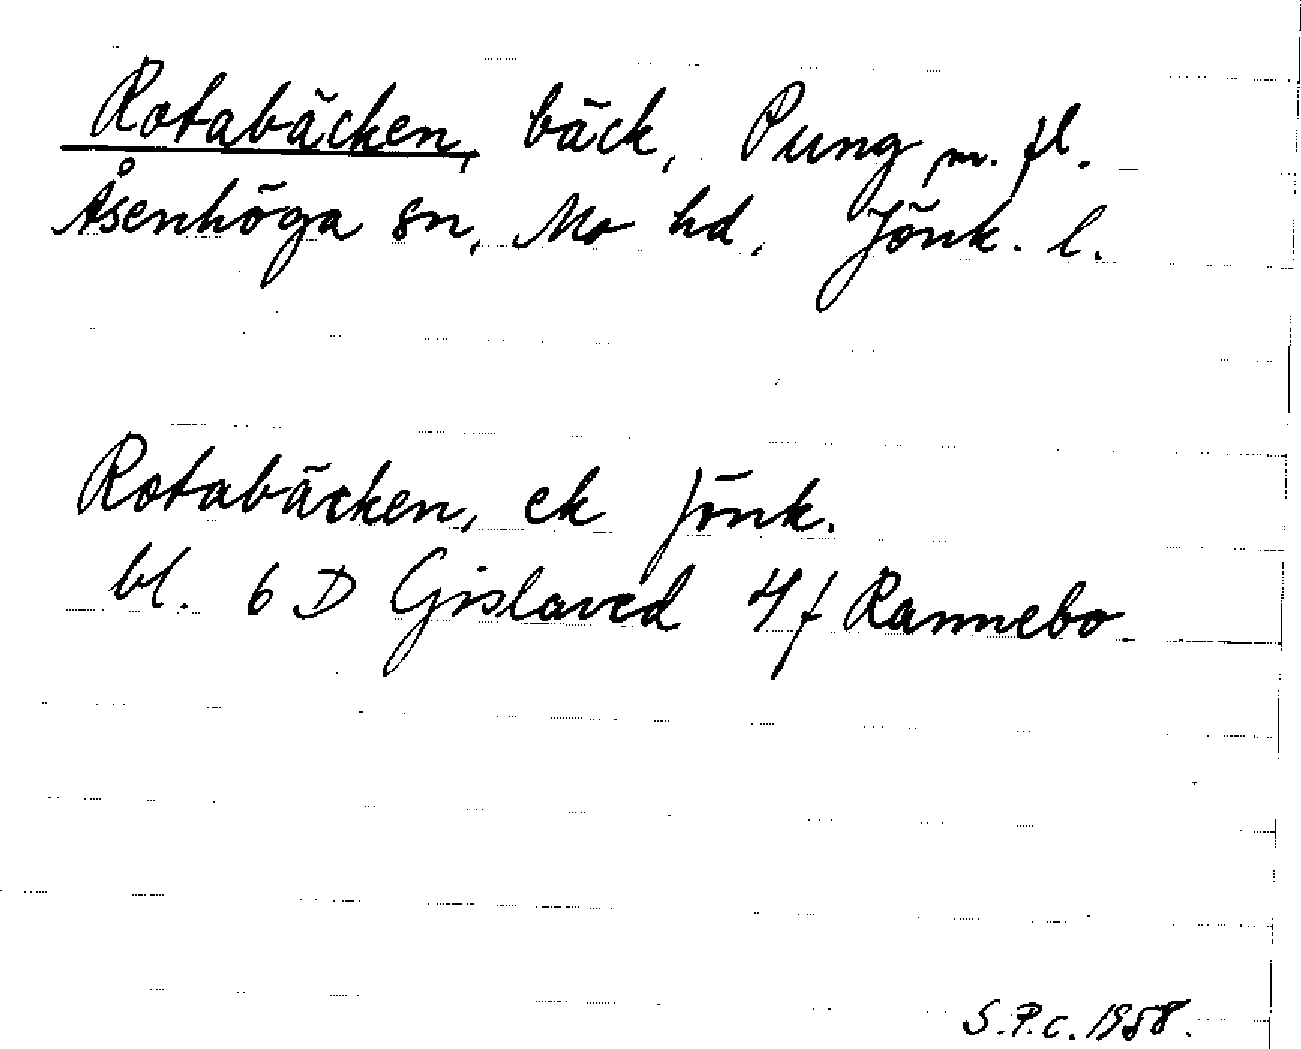 Rotabäcken, bäck, Pung m. fl.
Åsenhöga sn, Mo hd, Jönk. l.
Rotabäcken, ek Jönk.
bl. 6 D Gislaved 4f Rannebo
S.P.C. 1958.